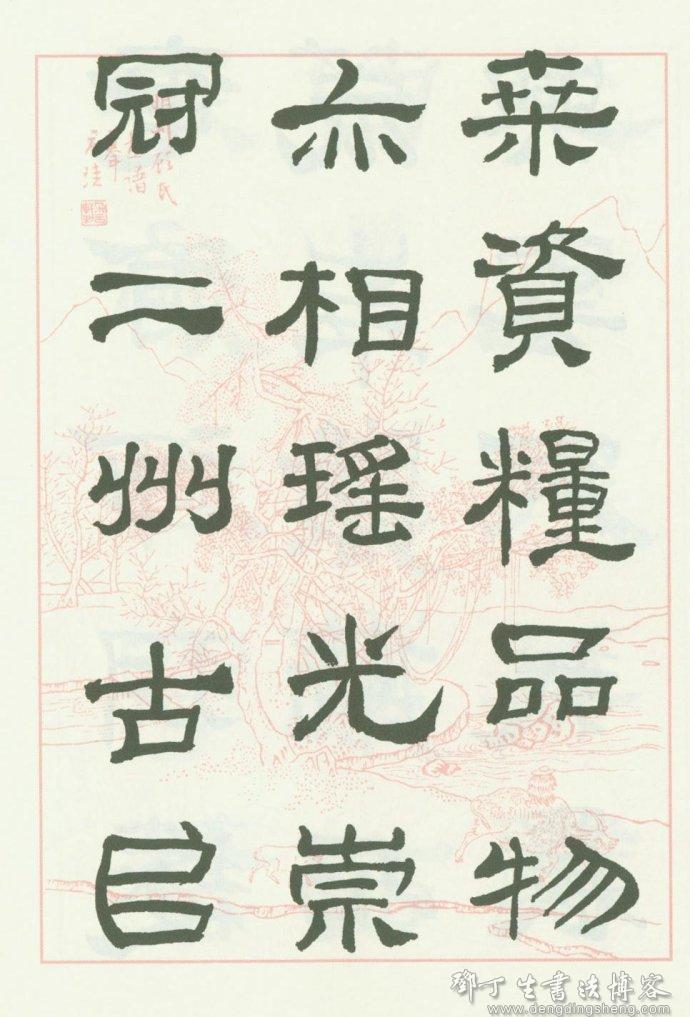 桒資糧品物
亦相瑤光崇
冠二州古曰
鄧丁生書法博客
www.dengdingsheng.com